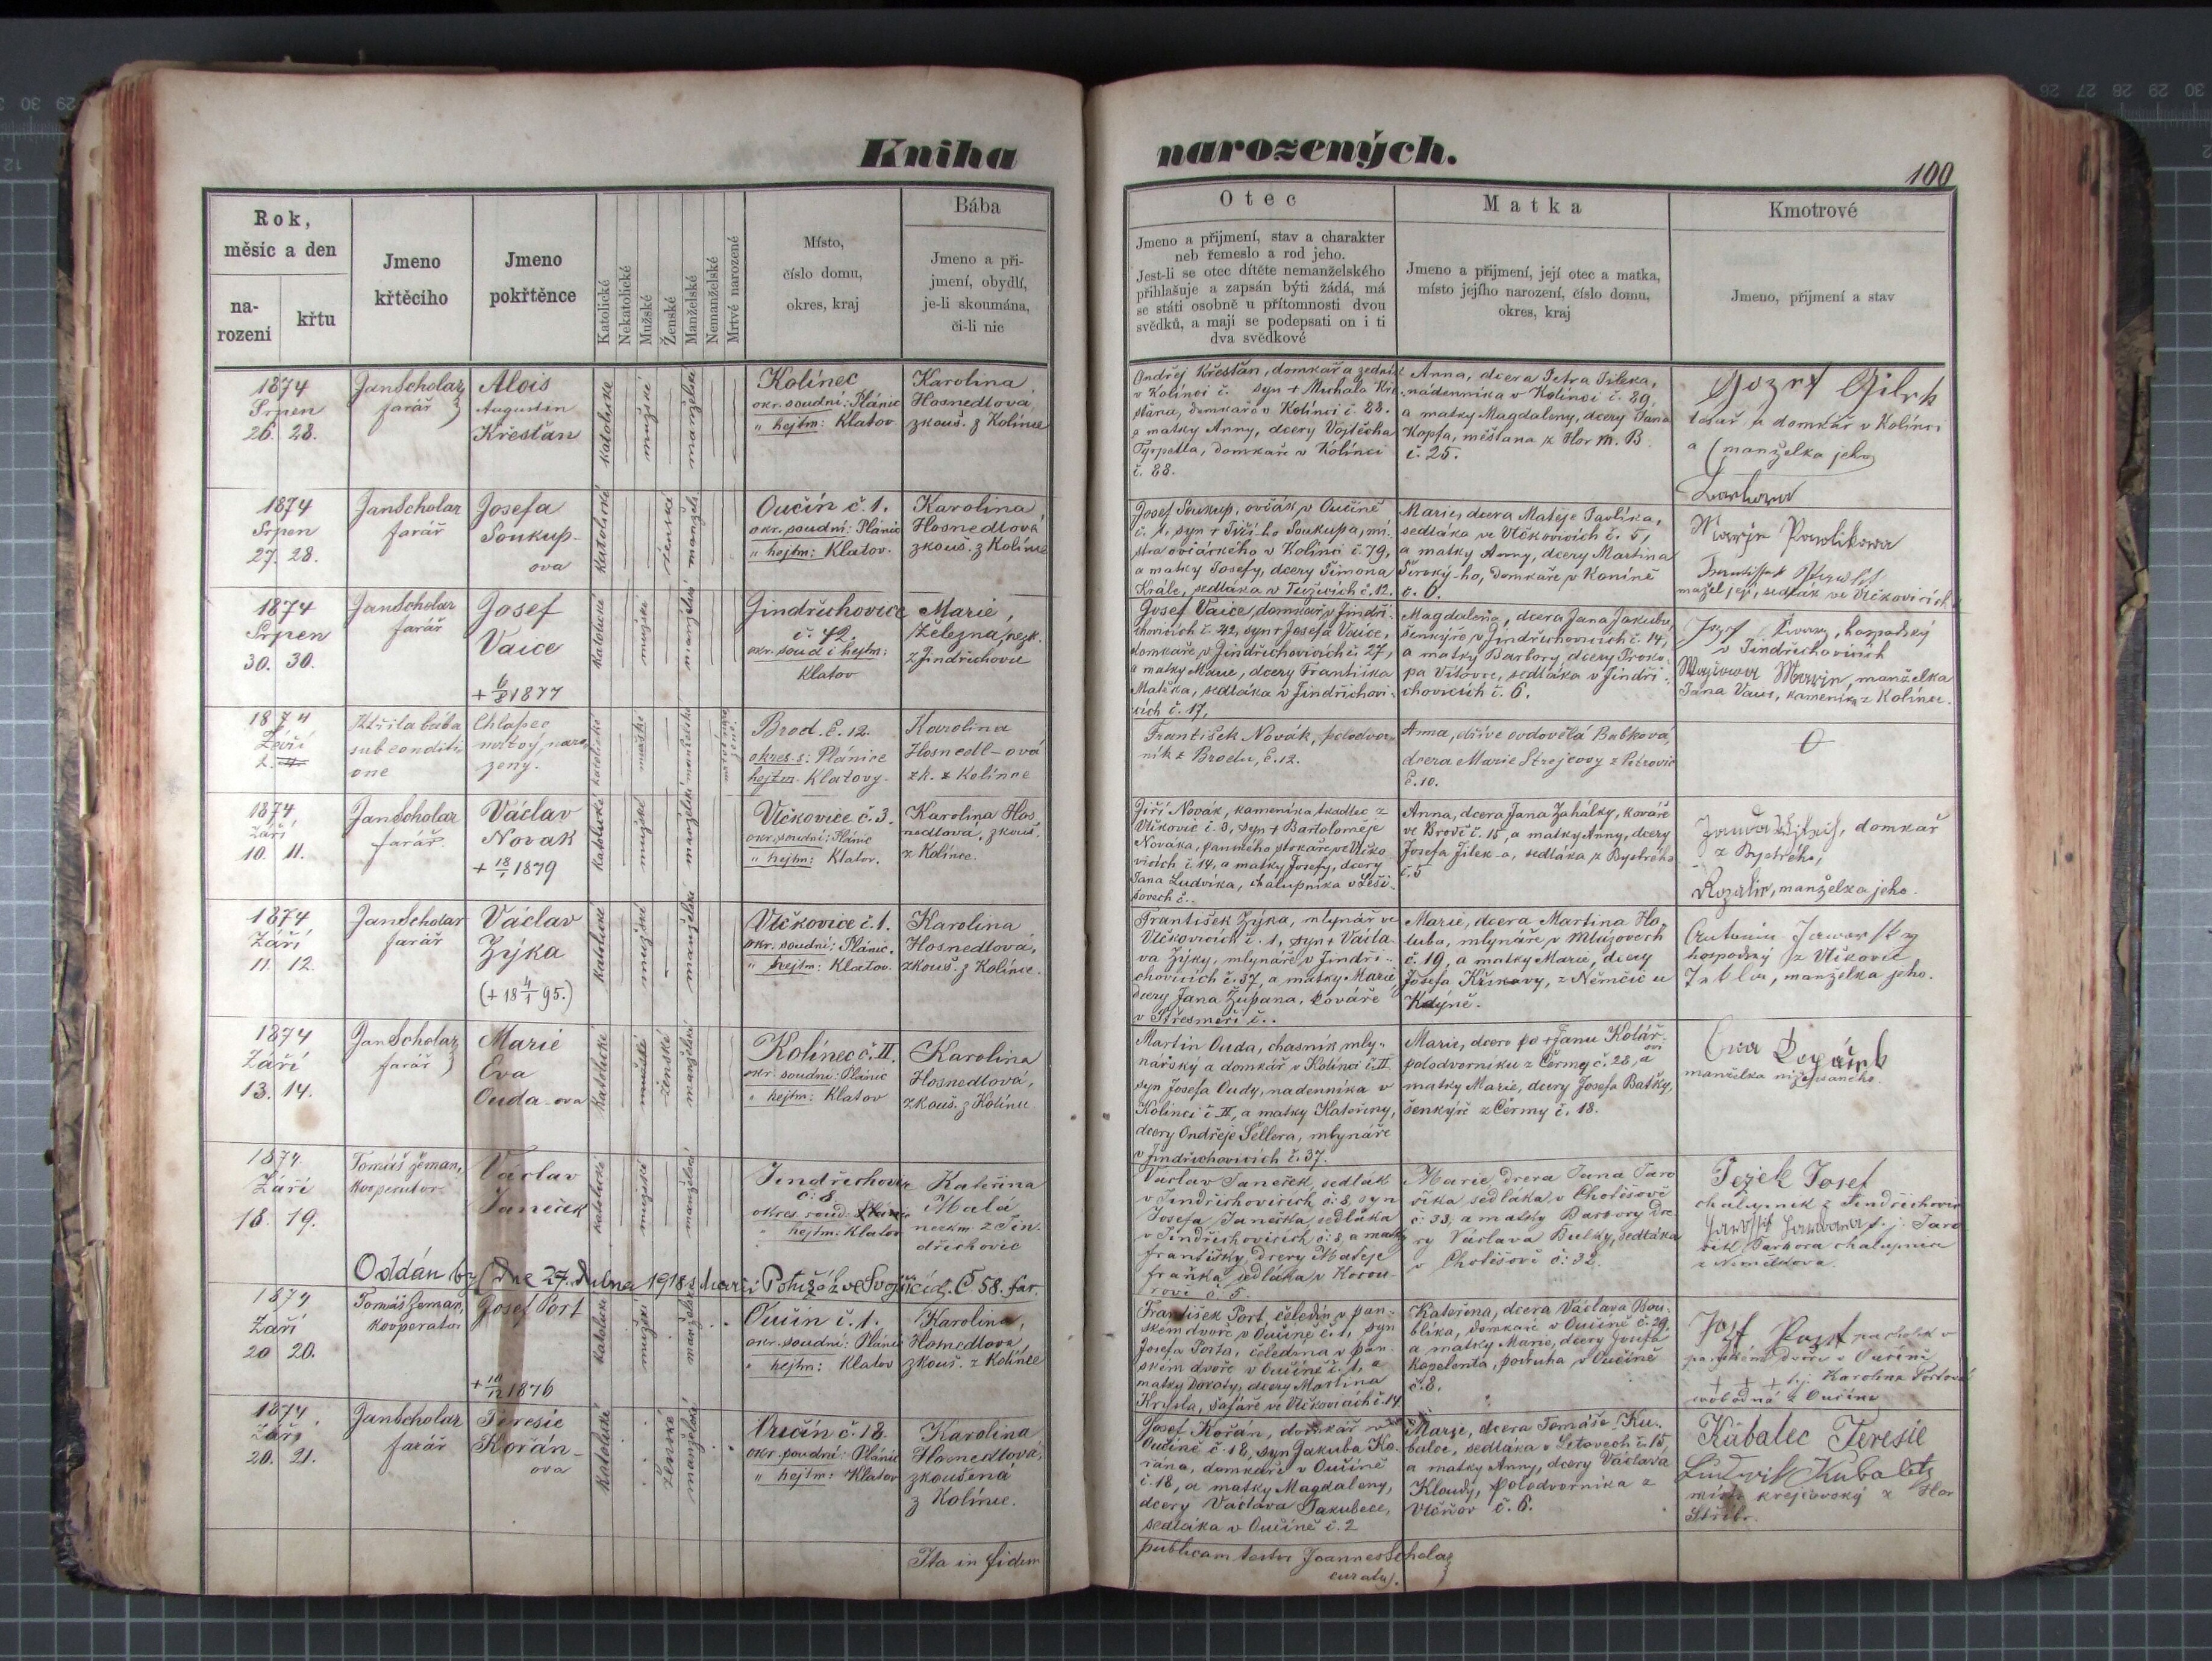 Kniha
narozených.
100
Rok,
měsíc a den
na-
rozeni
křtu
Jmeno
křtěciho
Jmeno
pokřtěnce
Katolické
Nekatolické
Mužské
Ženské
Manželské
Nemanželské
Mrtvě narozené
Místo,
číslo domu,
okres, kraj
Bába
Jmeno a pří-
jmení, obydlí,
je-li skoumána,
či-li nic
Otec
Jmeno a přijmení, stav a charakter
neb řemeslo a rod jeho.
Jest-li se otec dítěte nemanželského
přihlašuje a zapsán býti žádá, má
se státi osobně u přítomnosti dvou
svědků, a mají se podepsati on i ti
dva svědkové
Matka
Jmeno a přijmení, její otec a matka,
místo jejího narození, číslo domu,
okres, kraj
Kmotrové
Jmeno, přijmení a stav
1874
Srpen
26. 28.
Jan Scholaz
farář
Alois
Augustin
Křesťan
katolické
mužské
manželské
Kolínec
okr. soudní: Plánic
" hejtm: Klatov
Karolina
Hosnedlová
zkouš. z Kolínce
Ondřej Křesťan, domkář a zedník
v Kolínci č. syn + Michala Kře
stana, domkáře v Kolínci č. 88.
a matky Anny, dcery Vojtěcha
domkaře v Kolínci
č. 88.
Anna, dcera Petra Jíleka,
nádenníka v Kolínci č. 29,
a matky Magdaleny, dcery Jana
Kopfa, měšťana z Hor M. B.
č. 25.
tesař a domkář v Kolínci
a (manželka jeho
Barbora
1874
Srpen
27. 28.
Jan Scholaz
farář
Josefa
Soukup-
ova
katolické
ženské
manžels
Oučín č. 1.
okr. soudní: Plánic
" hejtm: Klatov.
Karolina
Hosnedlová
zkouš. z Kolínce
Josef Soukup, ovčák v Oučíně
č. 1, syn + Jiřího Soukupa, mi-
stra ovčáckého v Kolínci č. 79,
a matky Josefy, dcery Šimona
Krále, sedláka v č. 12.
Marie, dcera Matěje Pavlíka,
sedláka ve Vlčkovicích č. 5,
a matky Anny, dcery Martina
Široký-ho, domkaře v Koníně
č. 6.
Marje Pawlikowa
manžel její, sedlák ve Vlčkovicích
1874
Srpen
30. 30.
Jan Scholaz
farář
Josef
Vaice
+ 6/8 1877
katolické
mužské
manželské
Jindřichovice
č. 42.
okr. soud i hejtm:
Klatov
Marie,
Železná, nezk.
z Jindřichovic
Josef Vaice, domkář v Jindři-
chovicích č. 42, syn + Josefa Vaice,
domkaře v Jindřichovicích č. 27,
a matky Marie, dcery Františka
Matška, sedláka v Jindřichovi-
cích č. 17,
Magdalena, dcera Jana Jakuba,
šenkýře v Jindřichovicích č. 14,
a matky Barbory, dcery Proko-
pa Vítovce, sedláka v Jindři-
chovicích č. 6.
hospodský
v Jindřichovicích
Marin, manželka
Jana Vaice, kameník z Kolínce.
1874
Září
2.
Křtila bába
sub conditi-
one
Chlapec
mrtvý naro-
zený.
katolické
mužské
manželské
mrtvě narozené
Brod. č. 12.
okres s: Plánice
hejtm. Klatovy
Karolina
Hosnedl-ová
zk. z Kolínce
František Novák, podvor-
ník z Brodu, č. 12.
Anna, dříve ovdovělá Bubková,
dcera Marie Strejcovy z Petrovic
č. 10.
1874
Září
10. 11.
Jan Scholaz
farář
Václav
Novak
+ 18/1 1879
katolické
mužské
manželské
Vlčkovice č. 3.
okr. soudní: Plánic
" hejtm: Klatov.
Karolina Hos-
nedlova, zkouš.
z Kolínce.
Jiří Novák, kameník a tkadlec z
Vlčkovic č. 3, syn + Bartoloměje
Nováka, panského ve Vlčko-
vicích č. 14, a matky Josefy, dcery
Jana Ludvíka, chalupníka v Leši-
šovech č..
Anna, dcera Jana Zahálky, kováře
ve Brodě č. 15, a matky Anny, dcery
Josefa Jílek-a, sedláka z Bystrého
č. 5
domkář
z Bystrého,
Rozalie, manželka jeho.
1874
Září
11. 12.
Jan Scholaz
farář
Václav
Zýka
(+ 18 4/1 95.)
katolické
mužské
manželské
Vlčkovice č. 1.
okr. soudní: Plánic.
" hejtm: Klatov.
Karolina
Hosnedlová,
zkouš. z Kolínce.
František Zýka, mlynář ve
Vlčkovicích č. 1, syn + Václa-
va Zýky, mlynáře v Jindři-
chovicích č. 37, a matky Marie,
dcery Jana Župana, kováře
v Střesměři č..
Marie, dcera Martina Ho-
luba, mlynáře v Mlýzovech
č. 19, a matky Marie, dcery
Josefa Křikavy, z Němčic u
Kdýně.
Antonin
hospodský z Vlčkovic
manželka jeho.
1874
Září
13. 14.
Jan Scholaz
farář
Marie
Eva
Ouda-ova
katolické
ženské
manželské
Kolínec č. II.
okr. soudní: Plánic
" hejtm: Klatov
Karolina
Hosnedlová,
zkouš. z Kolínce
Martin Ouda, chasník mly-
nářský a domkář v Kolínci č. II
syn Josefa Oudy, nadenníka v
Kolínci č. II, a matky Kateřiny,
dcery Ondřeje Šellera, mlynáře
v Jindřichovicích č. 37.
Marie, dcera po + Janu Kolář-
ovi
polodvorníku z Čermy č. 28, a
matky Marie, dcery Josefa Bašky,
šenkýře z Čermy č. 18.
manželka
1874.
Září
18. 19.
Tomáš Zeman,
kooperator
Václav
Janeček
katolické
mužské
manželské
Jindřichovice
č: 8
okres. soud: Plánice
" hejtm: Klatov
Kateřina
Malá
nezkm z Jin-
dřichovic
Václav Janeček, sedlák
v Jindřichovicích č: 8, syn
Josefa Janečka, sedláka
v Jindřichovicích č: 8, a matky
Františky, dcery Matěje
Fraňka sedláka v
č: 5.
Marie, dcera Jana Jaro-
šíka sedláka v Chotěšově
č: 33, a matky Barbory dce-
ry Václava Bulky, sedláka
v Chotěšově č: 32.
Ježek Josef
chalupník z Jindřichovic
Barbora chalupnice
Oddán byl dne 27. dubna 1918 s dcerú ve Svojšicích. Č 58. far.
1874
Září
20 20.
Tomáš Zeman,
kooperator
Josef Port
+ 10/12 1876
katolické
mužské
manželské
Oučín č. 1.
okr. soudní: Plánic
" hejtm: Klatov
Karolina,
Hosnedlova
zkouš. z Kolínce
František Port, čeledín v pan-
ském dvoře v Oučíně č. 1, syn
Josefa Porta, čeledína v pan-
ském dvoře v Oučíně č. 1, a
matky Doroty, dcery Martina
šafáře ve Vlčkovicích č. 14
Kateřina, dcera Václava Bou-
blíka, domkaře v Oučíně č. 29,
a matky Marie, dcery Josefa
podruha v Oučíně
č. 8.
Jozf Port pacholek v
panském dvoře v Oučíně
+ + + t.j. Karolina Portová
svobodná z Oučína
1874
Září
20. 21.
Jan Scholaz
farář
Teresie
Kořán-
ova
katolické
ženské
manželské
Oučín č. 18.
okr. soudní: Plánic
" hejtm: Klatov
Karolina
Hosnedlova,
zkoušená
z Kolínce.
Josef Kořán, domkář v
Oučíně č. 18, syn Jakuba Ko-
řána, domkaře v Oučíně
č. 18, a matky Magdaleny,
dcery Václava Jakubece,
sedláka v Oučíně č. 2
Marie, dcera Tomáše Ku-
balce, sedláka v Letovech č. 15,
a matky Anny, dcery Václava
Kloudy, polodvorníka z
Vlčňov č. 6.
Kabalec Teresie
Ludwik Kubaletz
mistr krejčovský z Hor
Stříbr.
Ita in fidem
publicam testor Joannes Scholaz
curatus.